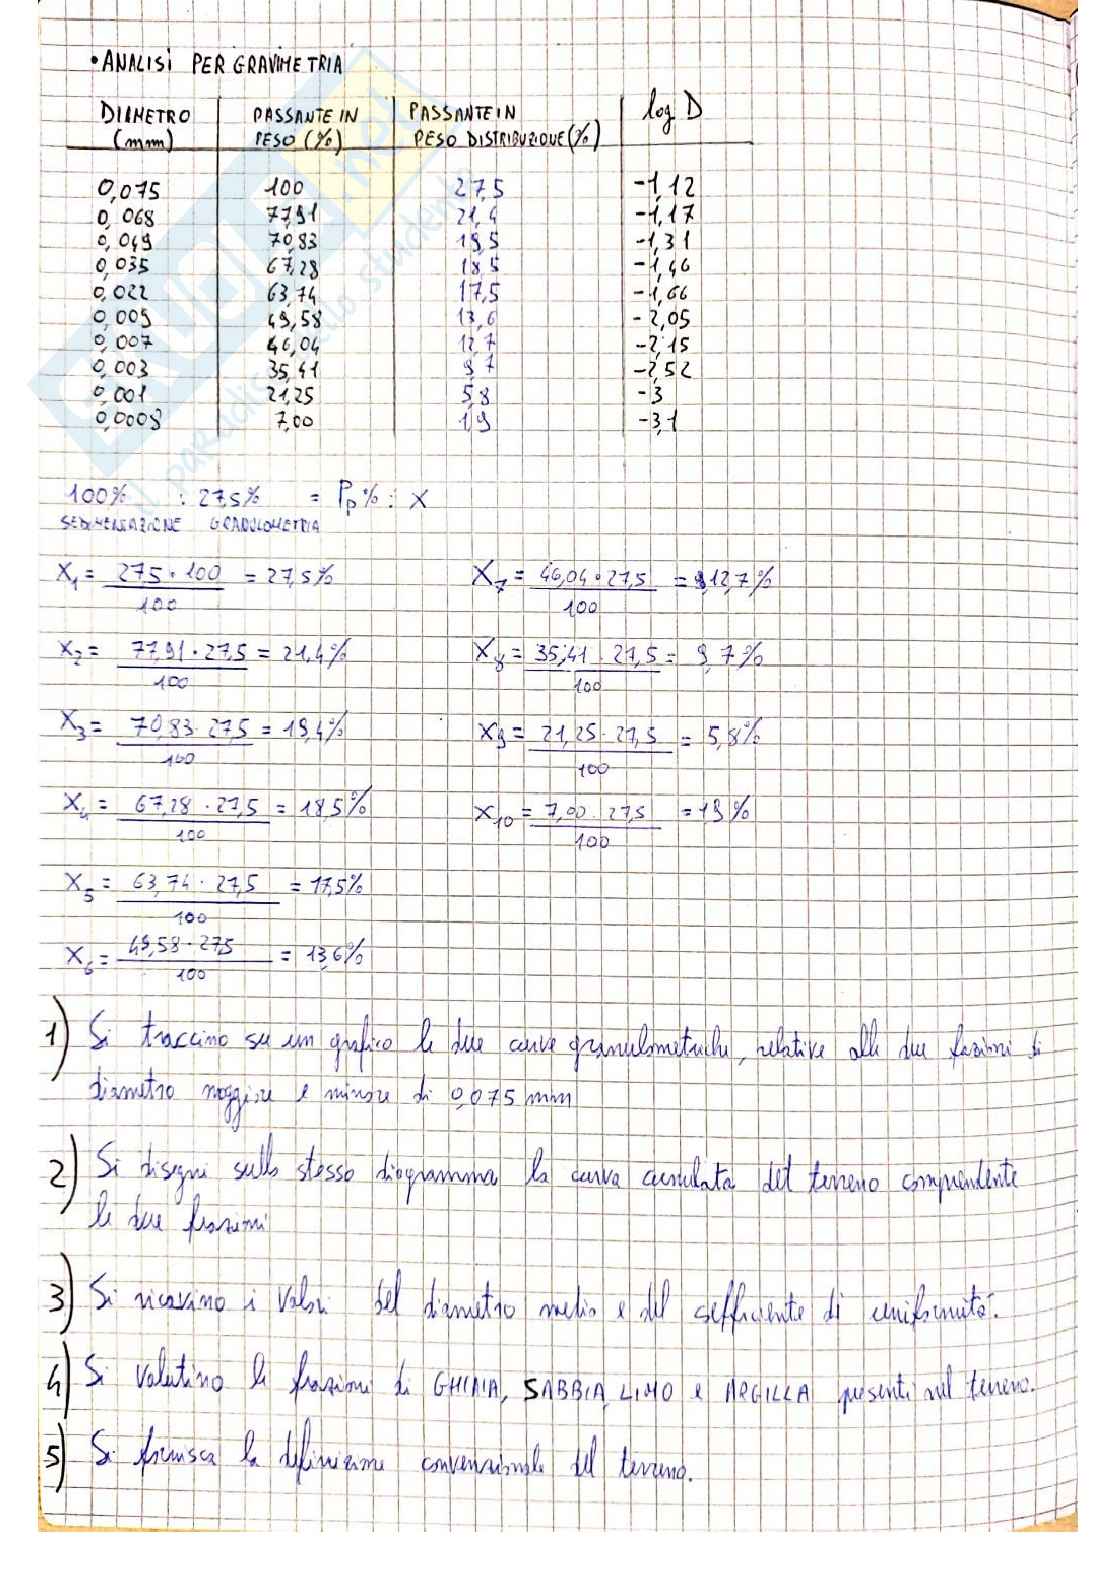 • ANALISI PER GRAVIMETRIA
DIAMETRO (mm) | PASSANTE IN PESO (%) | PASSANTE IN PESO DISTRIBUZIONE (%) | log D
0,075 | 100 | 27,5 | -1,12
0,068 | 77,91 | 21,4 | -1,17
0,049 | 70,83 | 19,5 | -1,31
0,035 | 67,28 | 18,5 | -1,46
0,022 | 63,74 | 17,5 | -1,66
0,009 | 49,58 | 13,6 | -2,05
0,007 | 46,04 | 12,7 | -2,15
0,003 | 35,41 | 9,7 | -2,52
0,001 | 21,25 | 5,8 | -3
0,0008 | 7,00 | 1,9 | -3,1
100% : 27,5% = Pp% : X
SEDIMENTAZIONE GRANULOMETRIA
X1 = 27,5 · 100 / 100 = 27,5%
X7 = 46,04 · 27,5 / 100 = 12,7%
X2 = 77,91 · 27,5 / 100 = 21,4%
X8 = 35,41 · 27,5 / 100 = 9,7%
X3 = 70,83 · 27,5 / 100 = 19,4%
X9 = 21,25 · 27,5 / 100 = 5,8%
X4 = 67,28 · 27,5 / 100 = 18,5%
X10 = 7,00 · 27,5 / 100 = 1,9%
X5 = 63,74 · 27,5 / 100 = 17,5%
X6 = 49,58 · 27,5 / 100 = 13,6%
1) Si traccino su un grafico le due curve granulometriche, relative alle due frazioni di
diametro maggiore e minore di 0,075 mm
2) Si disegni sullo stesso diagramma la curva cumulata del terreno comprendente
le due frazioni
3) Si ricavino i valori del diametro medio e del coefficiente di uniformità.
4) Si valutino le frazioni di GHIAIA, SABBIA, LIMO e ARGILLA presenti nel terreno.
5) Si fornisca la definizione convenzionale del terreno.